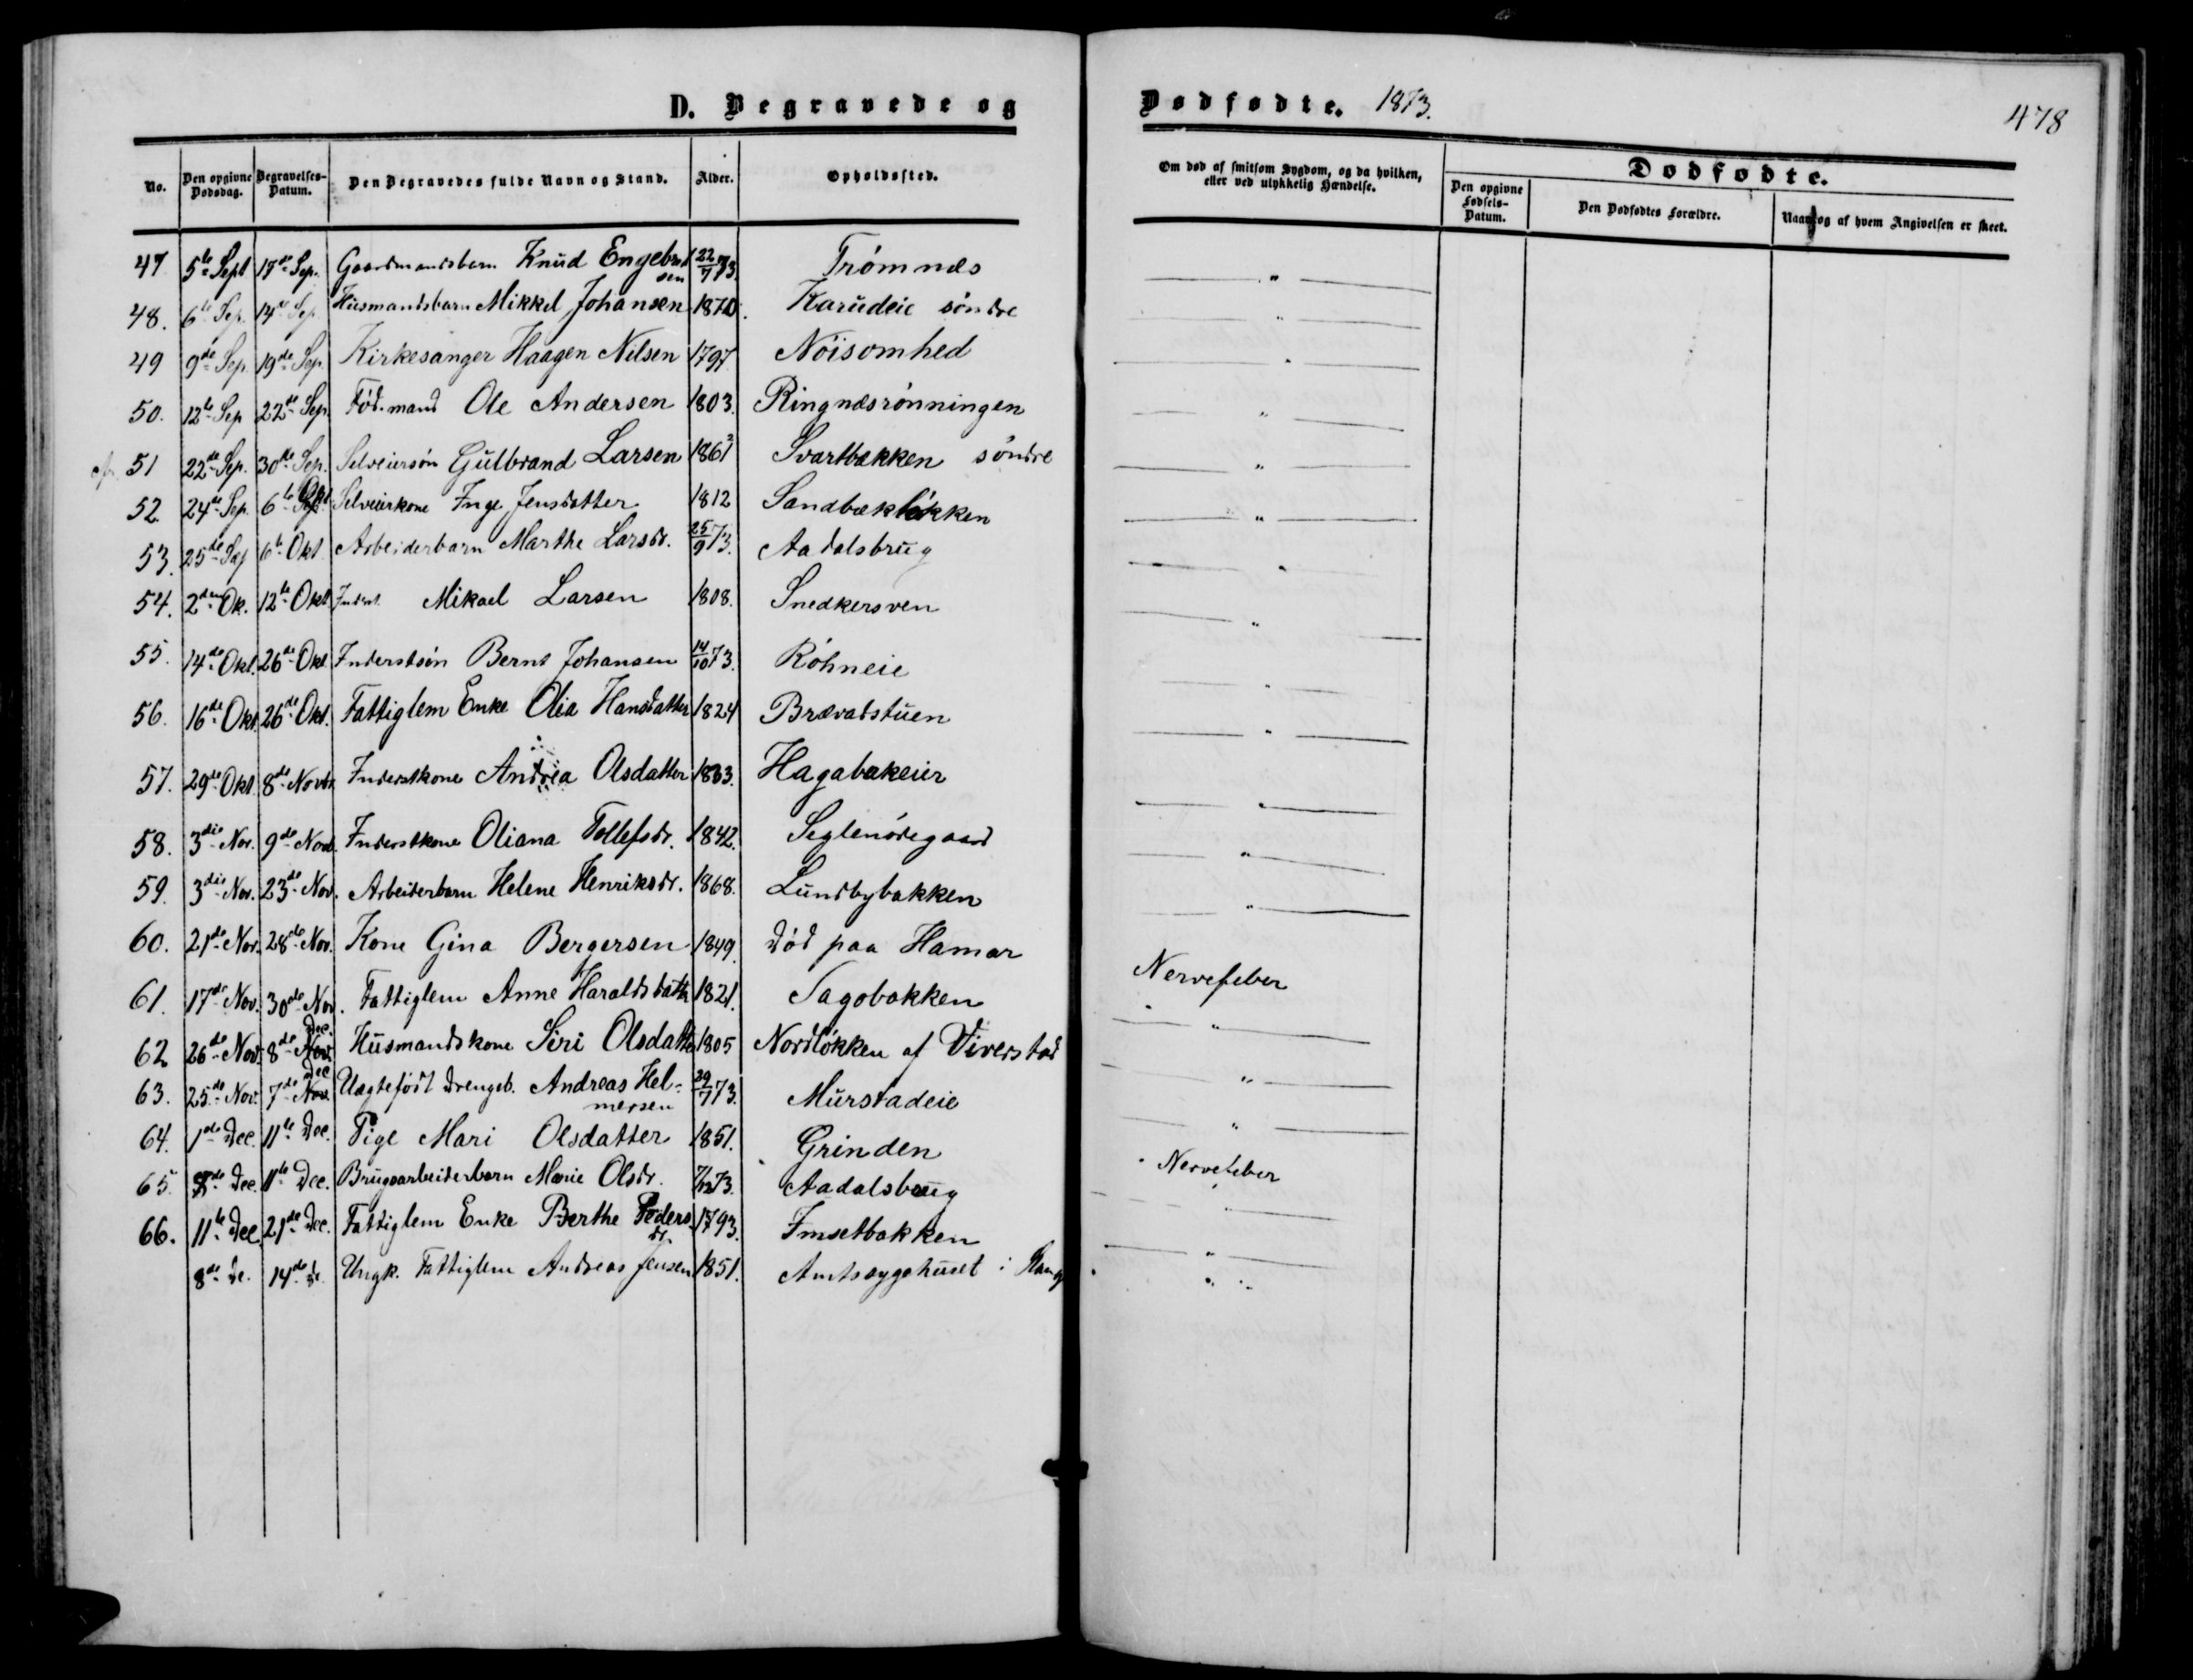 D. Begravede og
No. Den opgivne Dødsdag. Begravelses-Datum. Den Begravedes fulde Navn og Stand. Alder. Opholdssted.
47 5te Sept 17de Sep. Gaardmandsbarn Knud Engebretsen 22/7 73. Trømnæs
48. 6te Sep. 14de Sep. Husmandsbarn Mikkel Johansen 1870. Karudeie söndre
49 9de Sep. 19de Sep. Kirkesanger Haagen Nilsen 1797 Nöisomhed
50. 12te Sep 22de Sep. Fød.mand Ole Andersen 1803. Ringnæsrønningen
51 22de Sep. 30de Sep. Selveiersön Gulbrand Larsen 1861 Svartbækken söndre
52. 24de Sep. 6te Okt Selveierkone Inge Jensdatter 1812 Sandbækløkken
53. 25de Sep 6te Okt. Arbeiderbarn Marthe Larsdr. 25/9 73. Aadalsbrug
54. 2den Ok. 12te Okt Inderst Mikael Larsen 1808. Snedkersven
55. 14de Okt. 26de Okt. Inderstsön Bernt Johansen 14/10 73. Röhneie
56. 16de Okt. 26de Okt. Fattiglem Enke Olia Hansdatter 1824 Brævadstuen
57. 29de Okt. 8de Novbr. Inderstkone Andrea Olsdatter 1833. Hagabakeier
58. 3die Nov. 9de Novb. Inderstkone Oliana Tollefsdr. 1842. Seglenødegaard
59. 3die Nov. 23de Nov. Arbeiderbarn Helene Henriksdr. 1868. Lundbybakken
60. 21de Nov. 28de Nov. Kone Gina Bergersen 1849. död paa Hamar
61. 17de Nov. 30de Nov. Fattiglem Anne Haraldsdatter 1821. Sagobakken
62 26de Nov. 8de Dec. Husmandskone Siri Olsdatter 1805 Nordløkken af Viverstad
63. 25de Nov. 7de Dec Uægtefödt Drengeb. Andreas Helmersen 29/7 73. Murstadeie
64. 1ste Dec. 11te Dec. Pige Mari Olsdatter 1851. Grinden
65. 8de Dec. 11te Dec. Brugsarbeiderbarn Marie Olsdr. 7/12 73. Aadalsbrug
66. 11te Dec. 21de Dec. Fattiglem Enke Berthe Pedersdr. 1793. Imsetbakken
8de De. 14de De. Ungk. Fattiglem Andreas Jensen 1851. Amtssygehuset i Stang
Dødfødte. 1873.
478
Om død af smitsom Sygdom, og da hvilken, eller ved ulykkelig Hændelse.
Dødfødte.
Den opgivne Fødsels-Datum. Den Dødfødtes Forældre. Naar og af hvem Angivelsen er skeet.
Nervefeber
Nervefeber